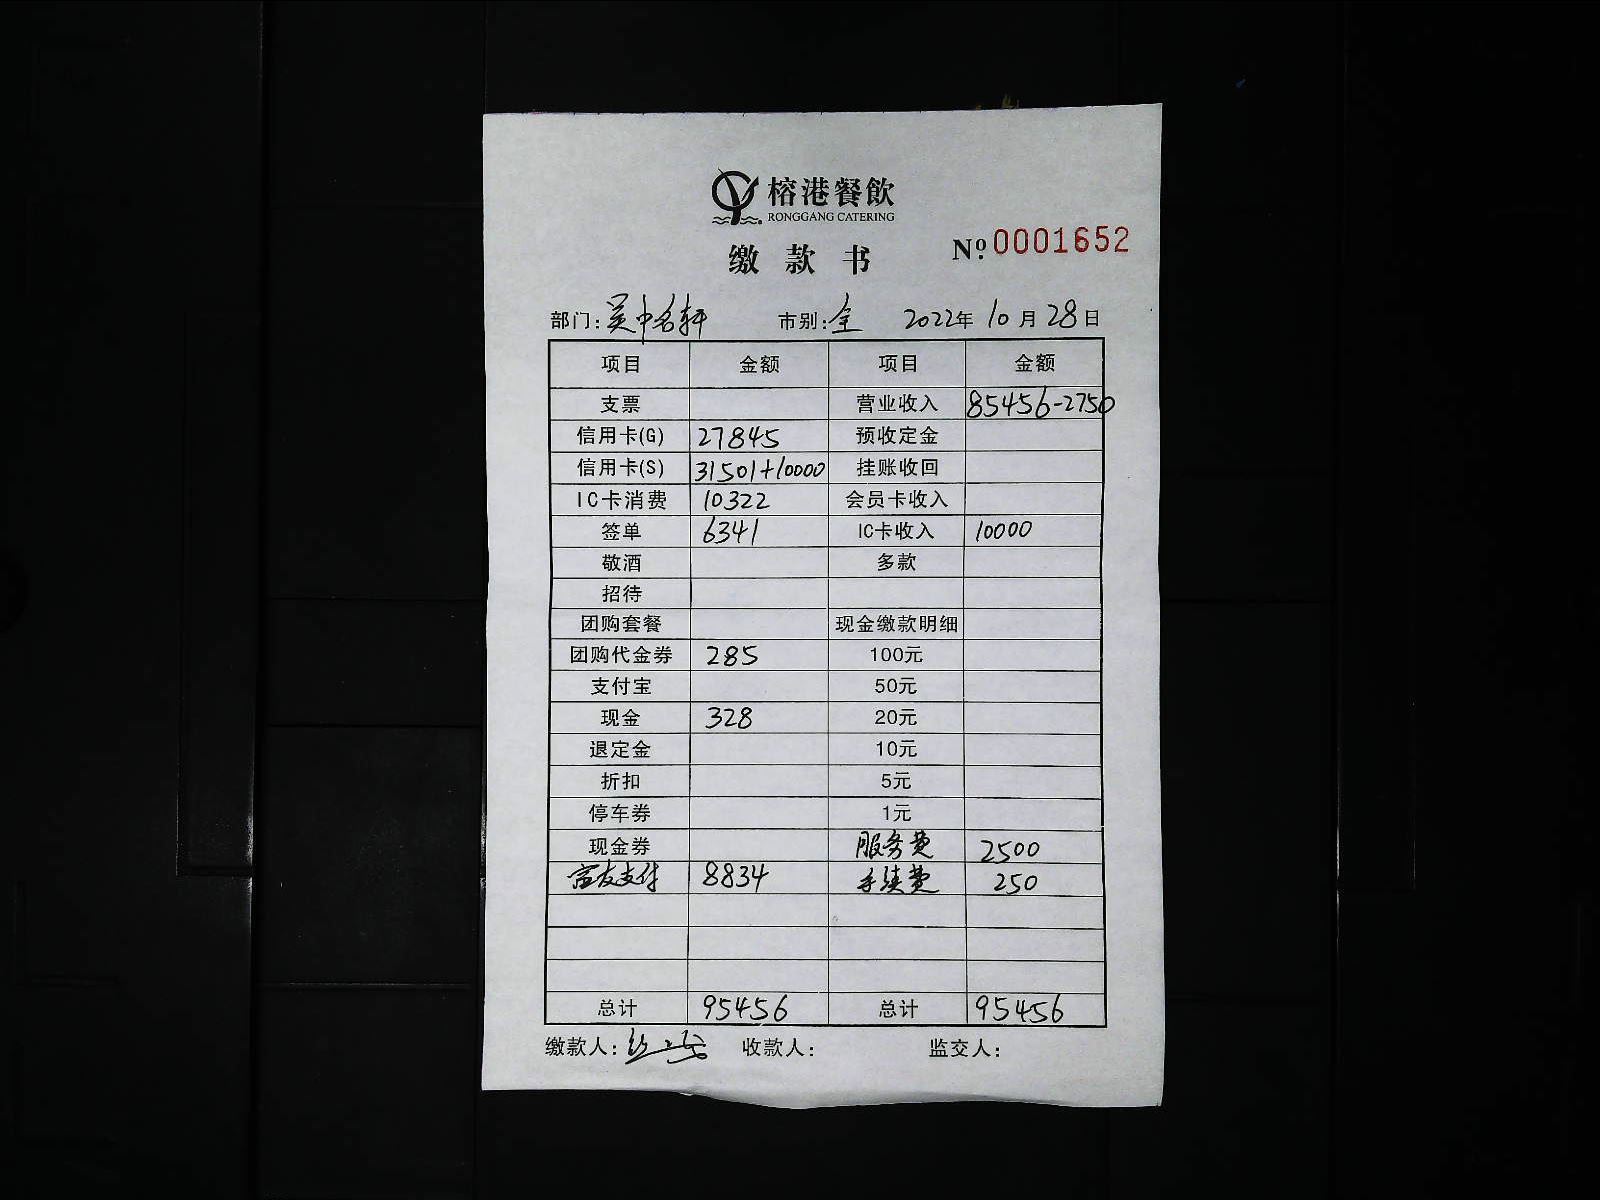 榕港餐飲
RONGGANG CATERING
缴款书
№ 0001652
部门：吴中名轩 市别：全 2022年10月28日
项目 金额 项目 金额
支票 营业收入 85456-2750
信用卡(G) 27845 预收定金
信用卡(S) 31501+10000 挂账收回
IC卡消费 10322 会员卡收入
签单 6341 IC卡收入 10000
敬酒 多款
招待
团购套餐 现金缴款明细
团购代金券 285 100元
支付宝 50元
现金 328 20元
退定金 10元
折扣 5元
停车券 1元
现金券 服务费 2500
支付 8834 手续费 250
总计 95456 总计 95456
缴款人： 收款人： 监交人：